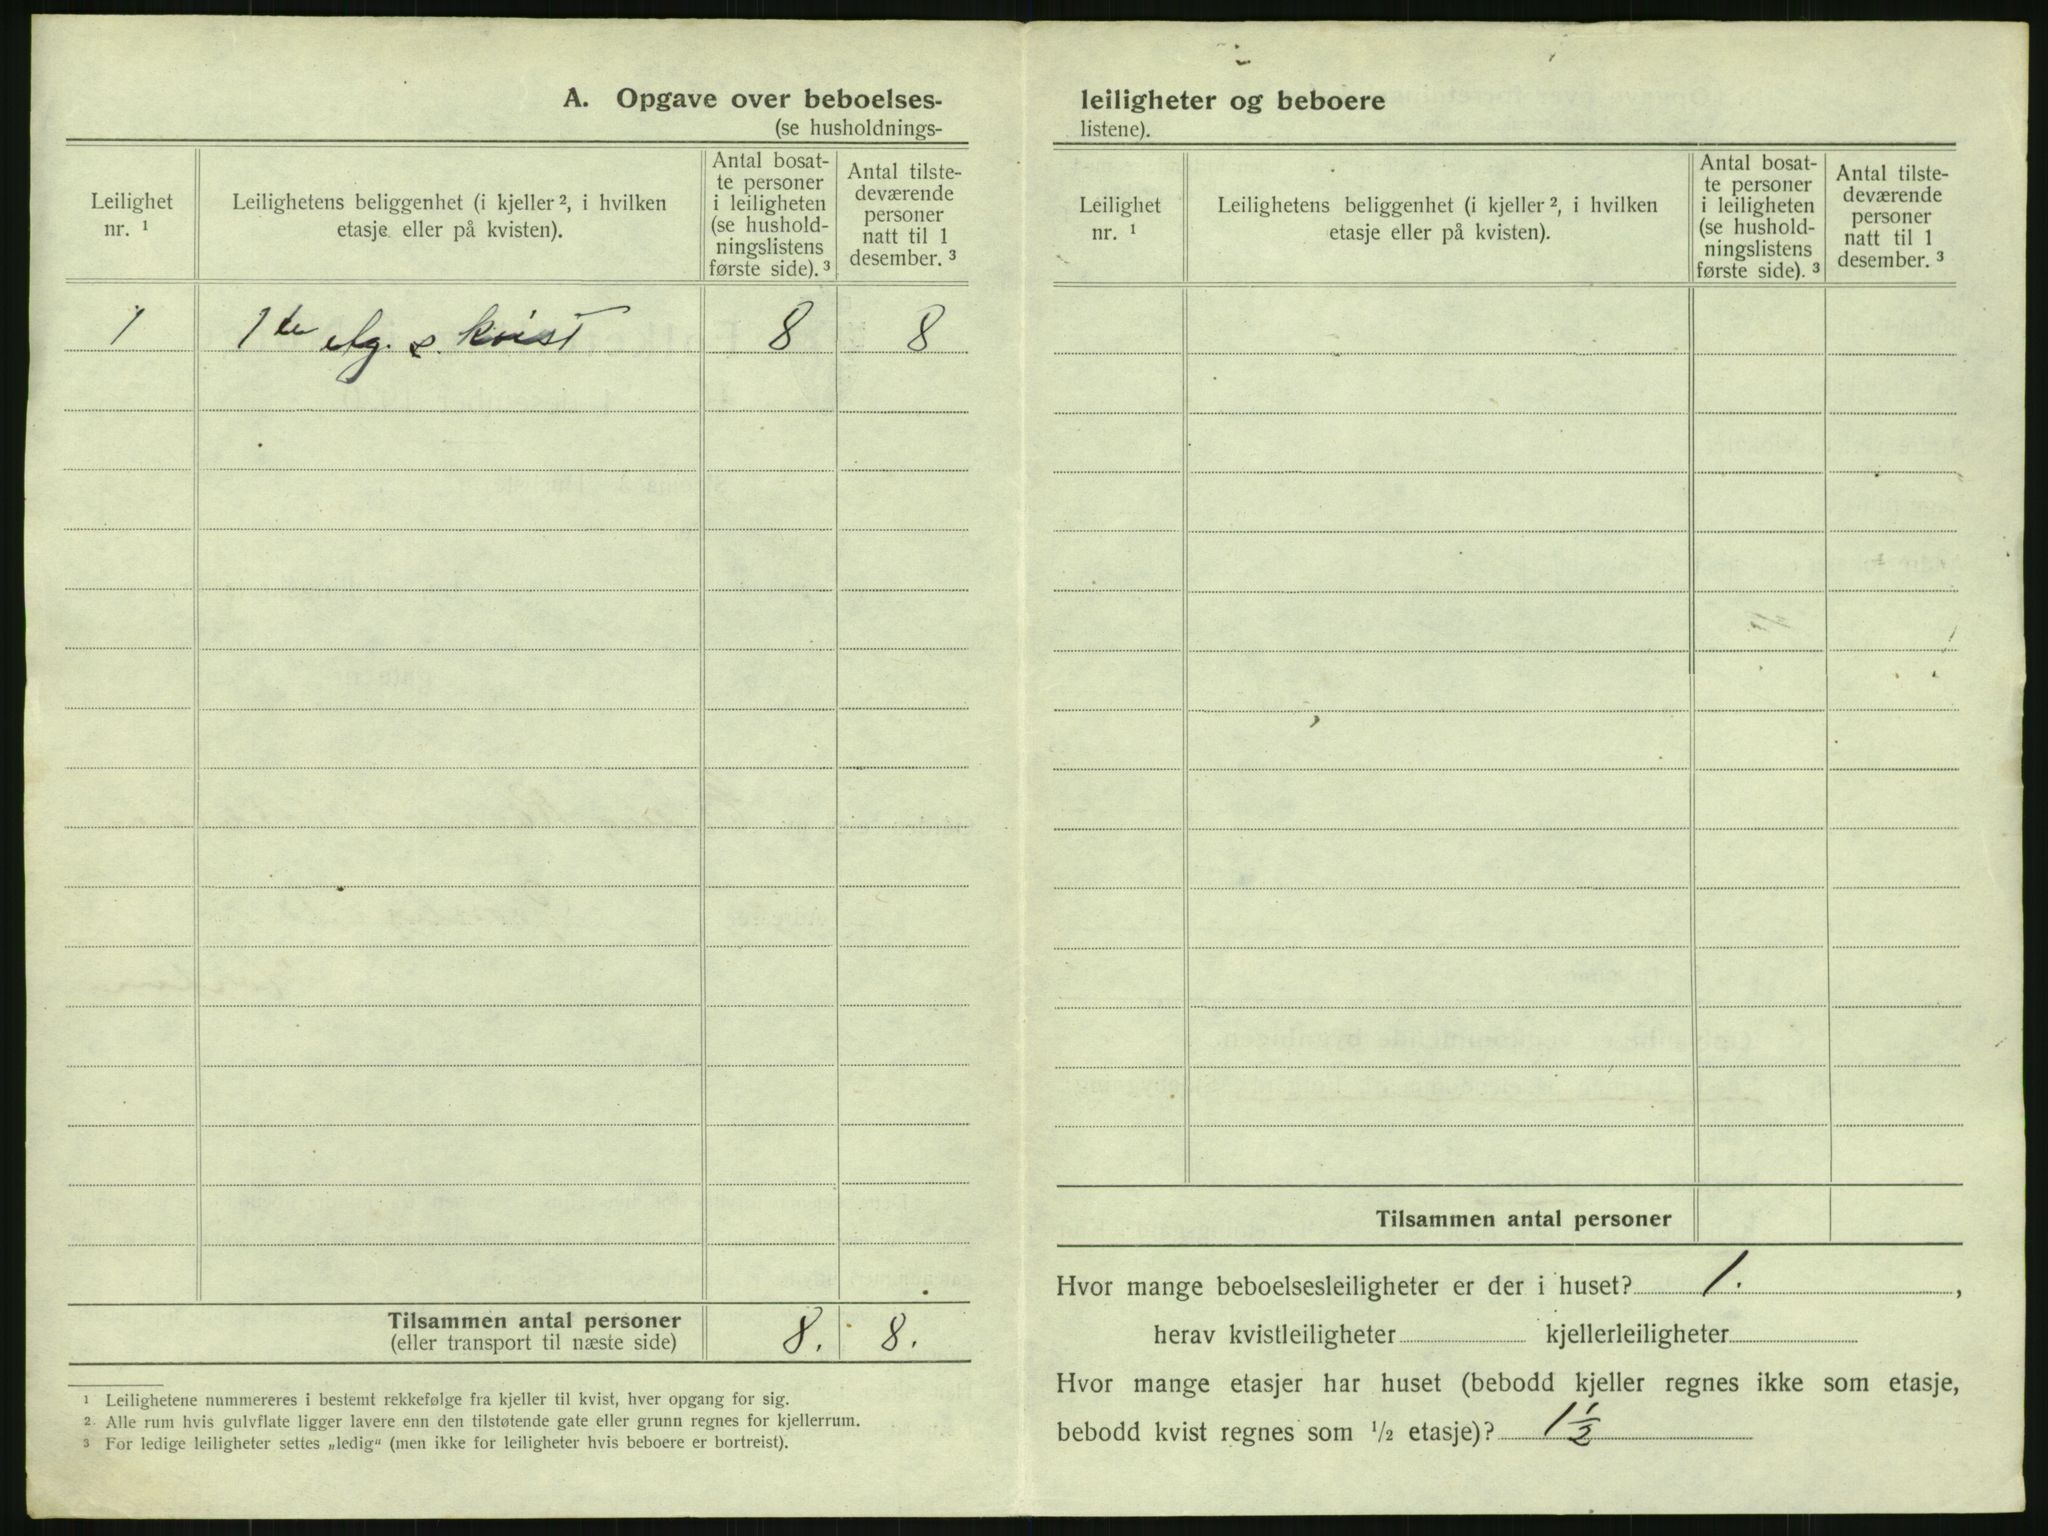 A. Opgave over beboelses-
(se husholdnings-
Leilighet
nr. ¹
Leilighetens beliggenhet (i kjeller ², i hvilken
etasje eller på kvisten).
Antal bosat-
te personer
i leiligheten
(se hushold-
ningslistens
første side). ³
Antal tilste-
deværende
personer
natt til 1
desember. ³
1 1ste etg. & kvist 8 8
Tilsammen antal personer 8. 8.
(eller transport til næste side)
¹ Leilighetene nummereres i bestemt rekkefølge fra kjeller til kvist, hver opgang for sig.
². Alle rum hvis gulvflate ligger lavere enn den tilstøtende gate eller grunn regnes for kjellerrum.
³ For ledige leiligheter settes „ledig“ (men ikke for leiligheter hvis beboere er bortreist).
leiligheter og beboere
listene).
Leilighet
nr. ¹
Leilighetens beliggenhet (i kjeller ², i hvilken
etasje eller på kvisten).
Antal bosat-
te personer
i leiligheten
(se hushold-
ningslistens
første side). ³
Antal tilste-
deværende
personer
natt til 1
desember. ³
Tilsammen antal personer
Hvor mange beboelsesleiligheter er der i huset? 1. ,
herav kvistleiligheter kjellerleiligheter
Hvor mange etasjer har huset (bebodd kjeller regnes ikke som etasje,
bebodd kvist regnes som ½ etasje)? 1½